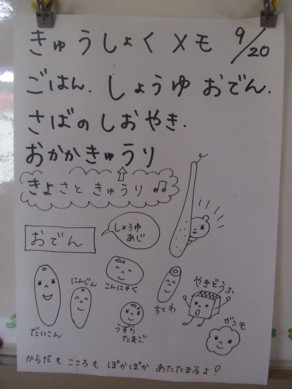 きゅうしょくメモ 9/20
ごはん. しょうゆ おでん.
さばの しおやき.
おかかきゅうり
きよさと きゅうり
おでん
しょうゆ
あじ
だいこん
にんじん
こんにゃく
うずら
たまご
ちくわ
やきどうふ
がんも
からだも こころも ぽかぽか あたたまるよ!